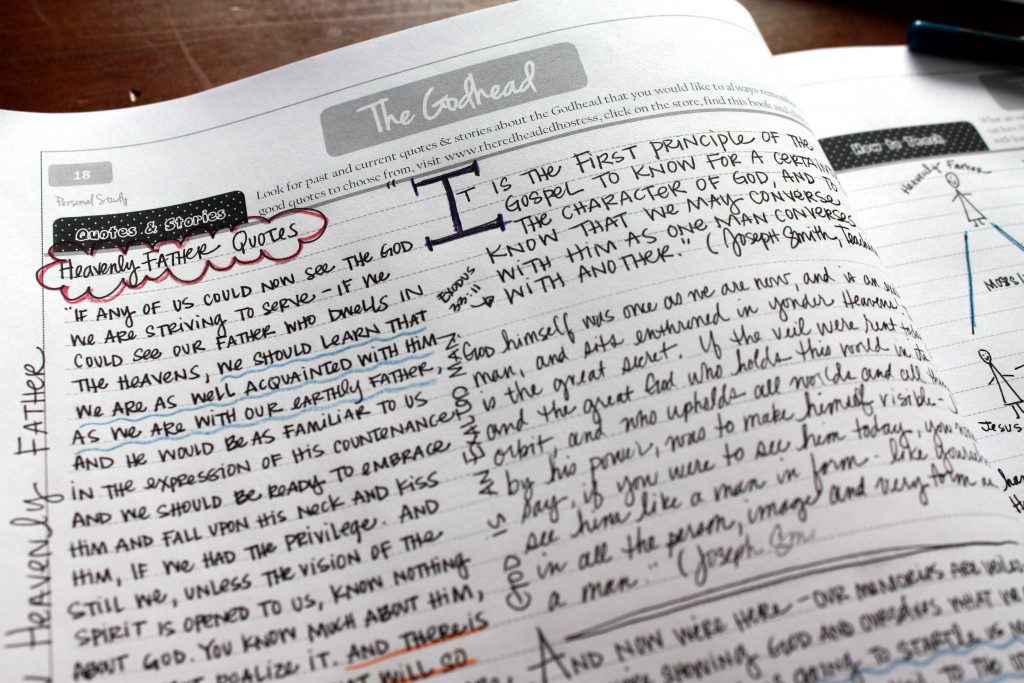 The Godhead
Look for past and current quotes & stories about the Godhead that you would like to always
good quotes to choose from, visit www.theredheadedhostess, click on the store, find this book and
18
Personal Study
Quotes & Stories
Heavenly Father Quotes
"If any of us could now see the God
we are striving to serve - if we
could see our Father who dwells in
the heavens, we should learn that
we are as well acquainted with Him
as we are with our earthly Father,
and He would be as familiar to us
in the expression of His countenance
and we should be ready to embrace
Him and fall upon His neck and kiss
Him, if we had the privilege. And
still we, unless the vision of the
Spirit is opened to us, know nothing
about God. You know much about Him,
realize it. And there is
will so
Heavenly Father
"It is the first principle of the
Gospel to know for a certain
the character of God, and to
know that we may converse
with Him as one man converses
with another." (Joseph Smith,
Exodus
33:11
God himself was once as we are now, and is an
man, and sits enthroned in yonder Heavens!
is the great secret. If the veil were rent
and the great God who holds this world in its
orbit, and who upholds all worlds and all
by his power, was to make himself visible -
say, if you were to see him today, you
see him like a man in form - like yourselves
in all the person, image and very form as
a man." (Joseph
God is an exalted man
And now we're here - our memories are veiled
showing God and ourselves what we
going to startle us
How to Teach
Heavenly Father
Moses
Jesus